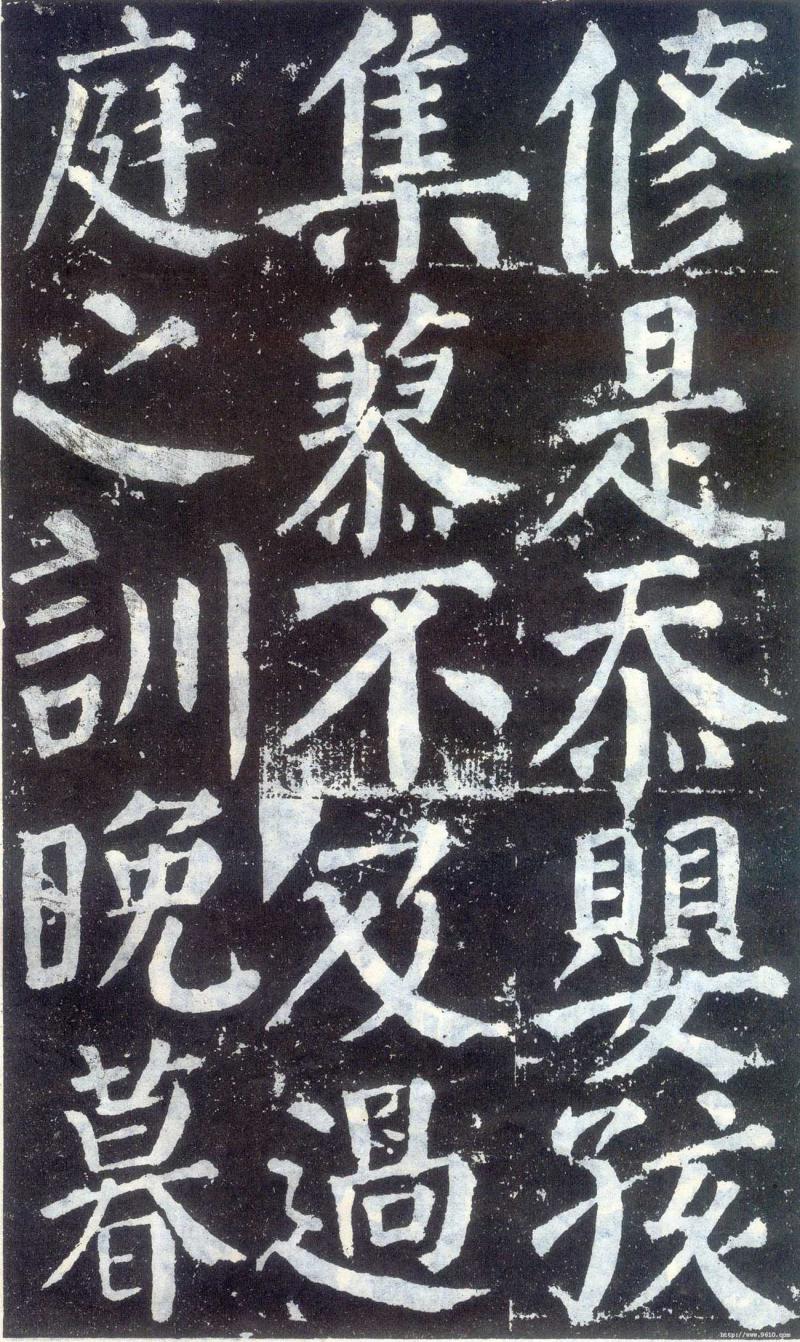 修是忝嬰孩
集蓼不及過
庭之訓晚暮
http://www.9610.com